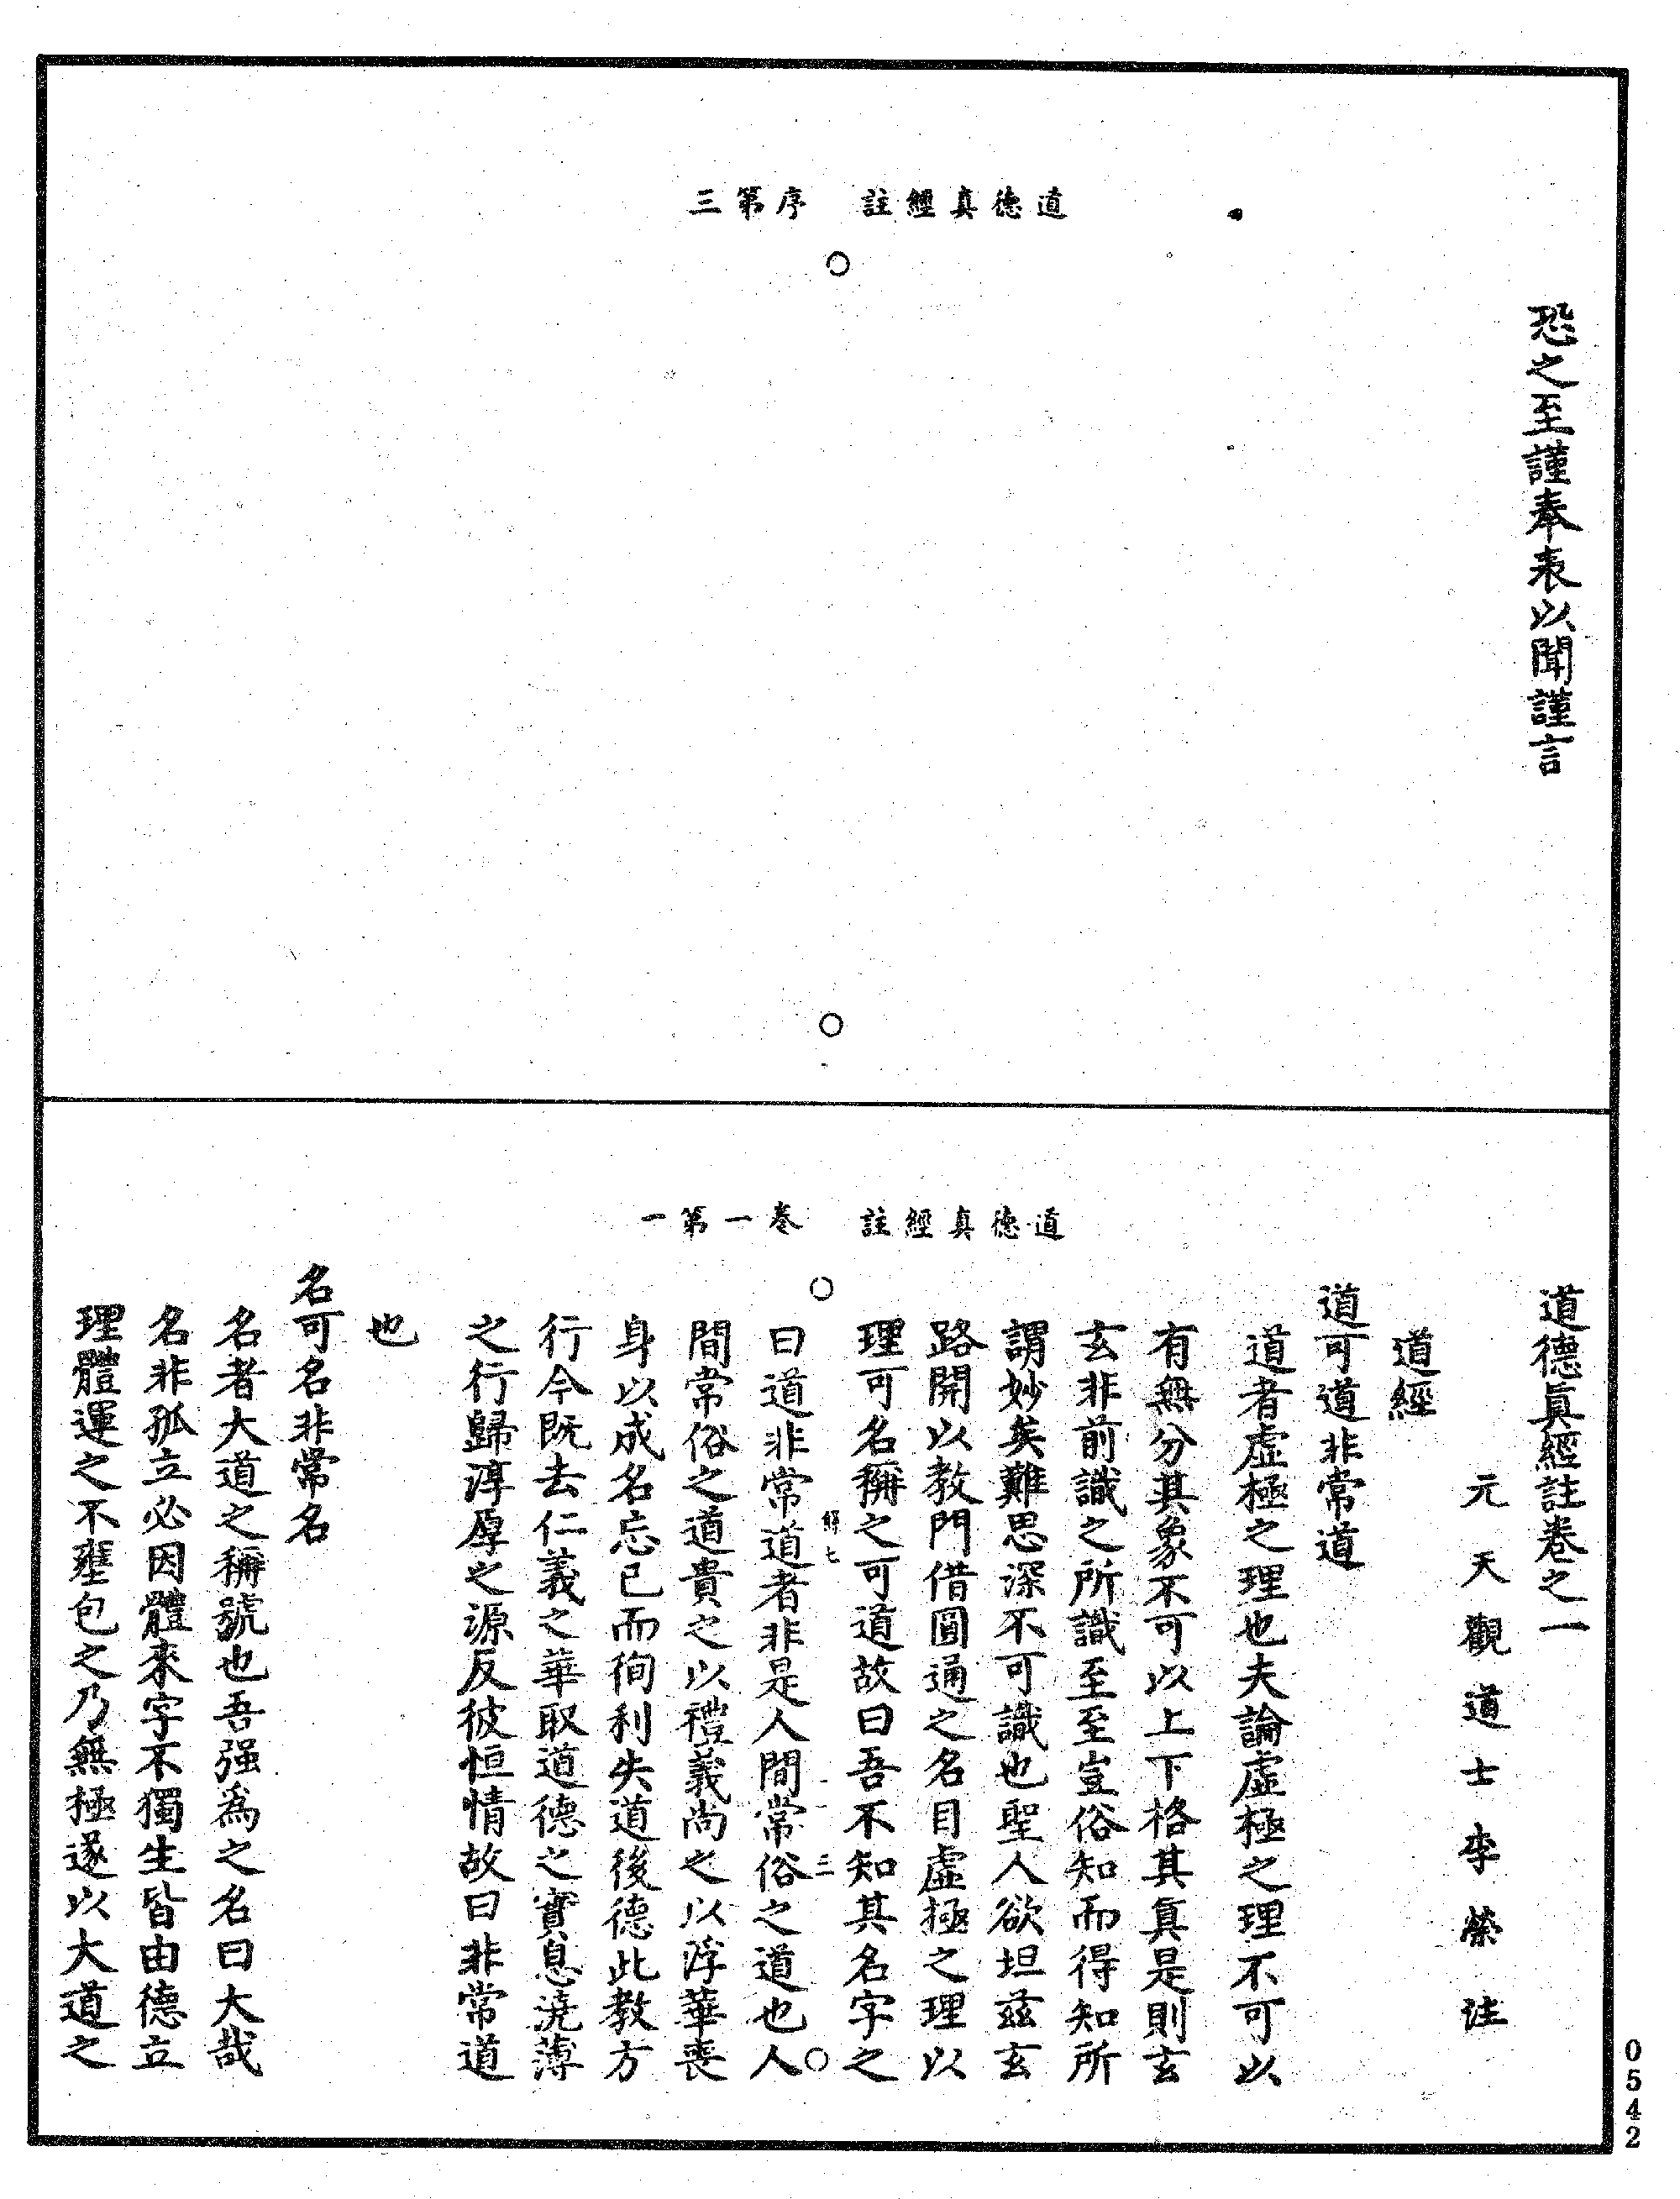 道德真經註　序第三
恐之至謹奉表以聞謹言
道德真經註　卷一第一
道德眞經註卷之一
元天觀道士李榮注
道經
道可道非常道
道者虛極之理也夫論虛極之理不可以
有無分其象不可以上下格其眞是則玄
玄非前識之所識至至豈俗知而得知所
謂妙矣難思深不可識也聖人欲坦茲玄
路開以教門借圓通之名目虛極之理以
理可名稱之可道故曰吾不知其名字之
曰道非常道者非是人間常俗之道也人
間常俗之道貴之以禮義尚之以浮華喪
身以成名忘己而徇利失道後德此教方
行今既去仁義之華取道德之實息澆薄
之行歸淳厚之源反彼恒情故曰非常道
也
名可名非常名
名者大道之稱號也吾强爲之名曰大哉
名非孤立必因體來字不獨生皆由德立
理體運之不壅包之乃無極遂以大道之
解七
三
0542